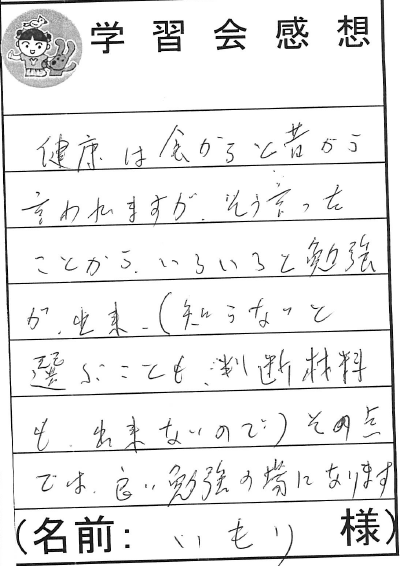 学習会感想
健康は食からと昔から
言われますが、そう言った
ことから、いろいろと勉強
が、出来、(知らないと
選ぶことも、判断材料
も、出来ないので)その点
では、良い勉強の場になります
(名前: いもり 様)